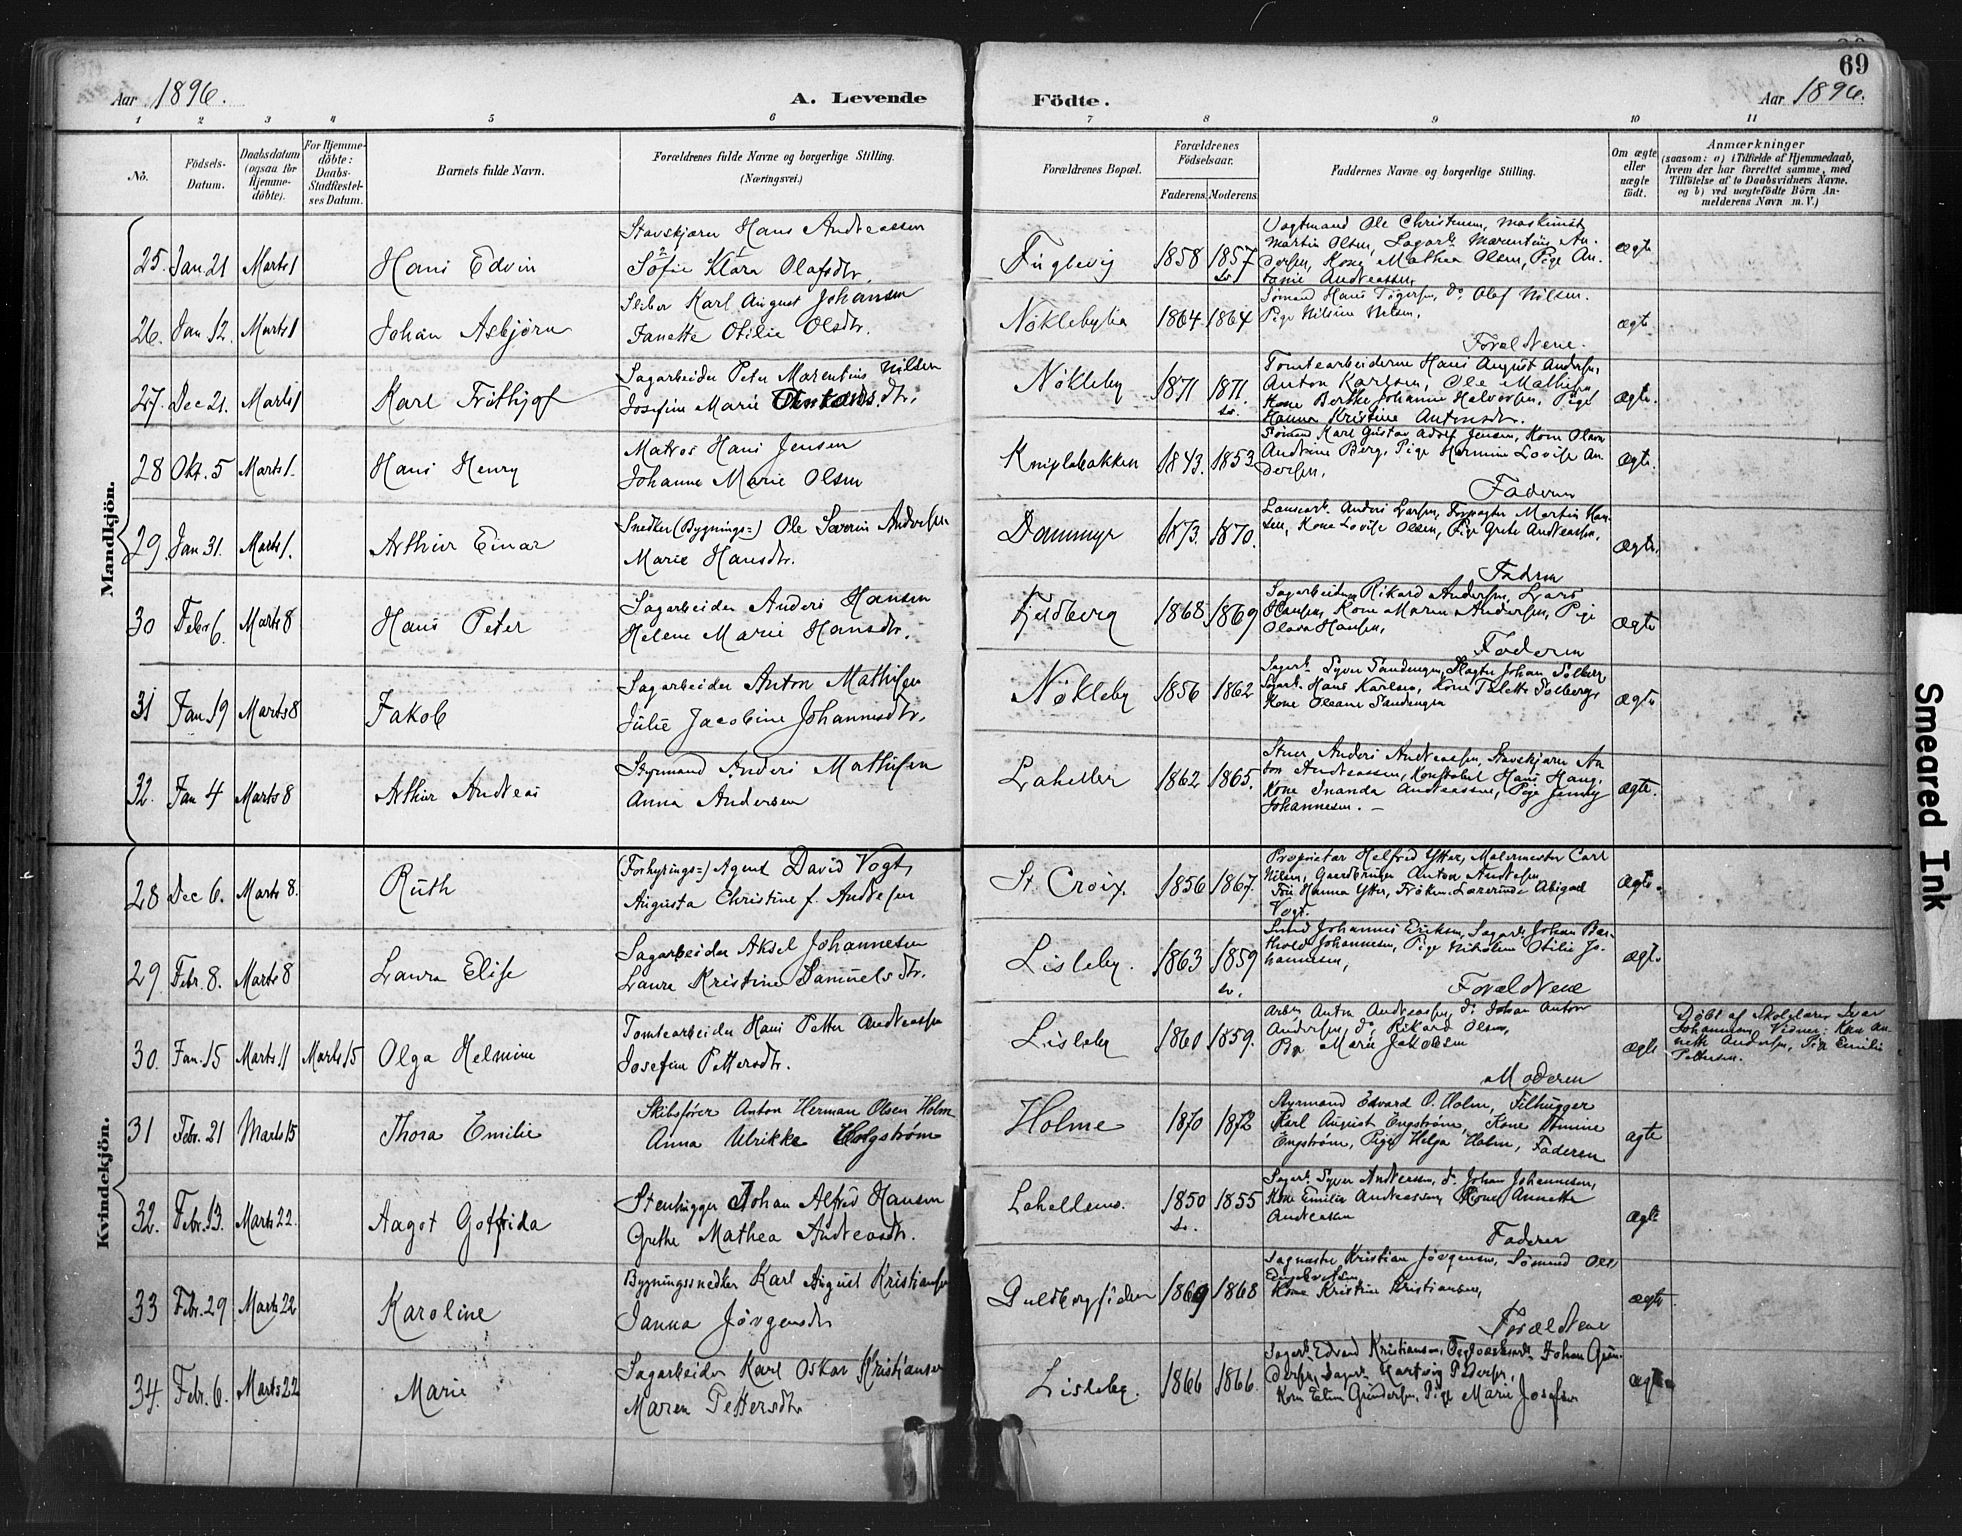 69
Aar 1896.
A. Levende
Födte.
Aar 1896.
1 2 3 4 5 6 7 8 9 10 11
No.
Födsels-
Datum.
Daabsdatum
(ogsaa for
Hjemme-
döbte).
For Hjemme-
döbte:
Daabs-
Stadfæstel-
ses Datum.
Barnets fulde Navn.
Forældrenes fulde Navne og borgerlige Stilling.
(Næringsvei.)
Forældrenes Bopæl.
Forældrenes
Födselsaar.
Faderens
Moderens
Faddernes Navne og borgerlige Stilling.
Om ægte
eller
uægte
födt.
Anmærkninger
(saasom: a) i Tilfælde af Hjemmedaab,
hvem der har forrettet samme, med
Tilföielse af to Daabsvidners Navne.
og b) ved uægtefödte Börn An-
melderens Navn m. V.)
Mandkjön.
25. Jan. 21 Marts 1 Hans Edvin
Stavskjærer Hans Andreassen
Sofie Klara Olafsdtr.
Fuglevig 1858 1857
Vagtmand Ole Christensen, Maskinist
Martin Olsen, Sagarb. Marentius An-
dersen, Kone Mathea Olsen, Pige An-
tonie Andreassen
ægte
26. Jan. 12. Marts 1 Johan Asbjørn
Sliber Karl August Johansen
Janette Otilie Olsdtr.
Nøklebylia 1864 1864
Sømand Hans Tøgersen, do Olaf Nilsen.
Pige Nilsine Nilsen.
Forældrene.
ægte
27. Dec 21. Marts 1 Karl Frithjof
Sagarbeider Peter Marentius Nilsen
Josefine Marie Antonsdtr.
Nøkleby 1871 1871.
Tomtearbeiderne Hans August Andersen,
Anton Karlsen, Ole Mathisen
Kone Berthe Johanne Halvorsen, Pige
Hanna Kristine Antonsdtr.
ægte.
28 Okt. 5 Marts 1. Hans Henry
Matros Hans Jensen
Johanne Marie Olsen
Kniplebakken 1843. 1853
Sømand Karl Gustav Adolf Jensen, Kone Olava
Andrine Berg, Pige Hermine Lovise An-
dersen,
Faderen
ægte.
29. Jan 31. Marts 1. Arthur Einar
Snedker (Bygnings=) Ole Severin Andersen
Marie Hansdtr.
Dammyr 1873. 1870.
Anders Larsen, Forpagter Martin Han-
sen, Kone Lovise Olsen, Pige Grete Andreassen,
Faderen
ægte.
30 Febr 6. Marts 8 Hans Peter
Sagarbeider Anders Hansen
Helene Marie Hansdtr.
Fjeldberg 1868 1869
Sagarbeiderne Rikard Andersen, Lars
Hansen, Kone Maren Andersen, Pige
Olava Hansen,
Faderen
ægte
31 Jan. 19 Marts 8 Jakob
Sagarbeider Anton Mathisen
Julie Jacobine Johannesdtr.
Nøkleby 1856 1862
Sagarb. Syver Sandengen, Slagter Johan Solberg,
Sagarb. Hans Karlsen, Kone Talette Solberg,
Kone Oleane Sandengen
ægte
32. Jan 4 Marts 8 Arthur Andreas
Styrmand Anders Mathisen
Anna Andersen
Lahellen 1862 1865.
Stuer Anders Andreassen, Stavskjærer An-
ton Andreassen, Konstabel Hans Haug,
Kone Inanda Andreassen, Pige Jenny
Johannesen. —
ægte.
Kvindekjön.
28 Dec 6. Marts 8. Ruth
(Forhyrings=) Agent David Vogt
Augusta Christine f. Andersen
St. Croix. 1856 1867.
Proprietær Helfred Ytter, Malermester Carl
Nilsen, Gaardbruger Anton Andersen
Fru Hanna Ytter, Frøken Abigael
Vogt.
ægte.
29. Febr. 8. Marts 8 Laura Elise
Sagarbeider Aksel Johannesen
Laura Kristine Samuelsdtr.
Lisleby. 1863 1859
Smed Johannes Eriksen, Sagarb. Johan Bar-
thold Johannesen, Pige Nikoline Otilie Jo-
hannesen,
Forældrene
ægte
30. Jan. 15 Marts 11 Marts 15 Olga Helmine
Tomtearbeider Hans Petter Andreassen
Josefine Pettersdtr.
Lisleby 1860 1859.
Arbr. Anton Andreassen, do Johan Anton
Andersen, do Rikard Olsen,
Pg. Marie Jakobsen
Moderen
ægte
Døbt af Skolelærer Ivar
Johannesen, Vidner: Kone An-
nette Andersen, Pige Emilie
Pettersen.
31 Febr. 21 Marts 15 Thora Emilie
Skibsfører Anton Herman Olsen Holm
Anna Ulrikke Engstrøm
Holme 1870 1872
Styrmand Edvard O. Holm, Filhugger
Karl August Engstrøm, Kone Amine
Engstrøm, Pige Helga Holm, Faderen
ægte
32. Febr. 13. Marts 22. Aagot Gotfrida
Stenhugger Johan Alfred Hansen
Grethe Mathea Andreasdtr.
Lahellene. 1850 1855
Sagarb. Syver Andreassen, do Johan Johannesen,
Kone Emilie Andreassen, Kone Annette
Andreasen
Faderen
ægte
33 Febr. 29 Marts 22 Karoline
Bygningssnedker Karl August Kristiansen
Janna Jørgensdtr
Guldbergsiden 1869 1868
Sagmester Kristian Jørgensen, Sømand Ole
Engebretsen
Kone Kristine Kristiansen,
Forældrene
ægte
34. Febr. 6. Marts 22 Marie
Sagarbeider Karl Oskar Kristiansen
Maren Pettersdtr
Lisleby. 1866 1866.
Sagarb. Edvard Kristiansen, Johan Gun-
dersen, Sagarb. Hartvig Pedersen,
Kone Elin Gundersen, Pige Marie Josefsen
ægte
Smeared Ink